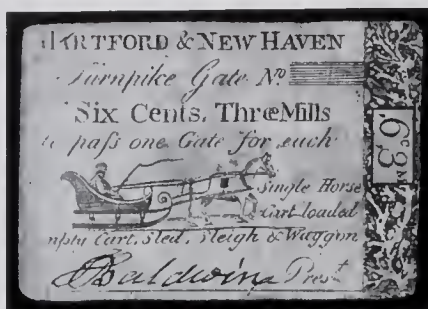 HARTFORD & NEW HAVEN
Turnpike Gate No
Six Cents, Three Mills
to paſs one Gate for each
Single Horse
Cart loaded
mpty Cart, Sled, Sleigh & Waggon
Baldwin Prest
6 C 3 M